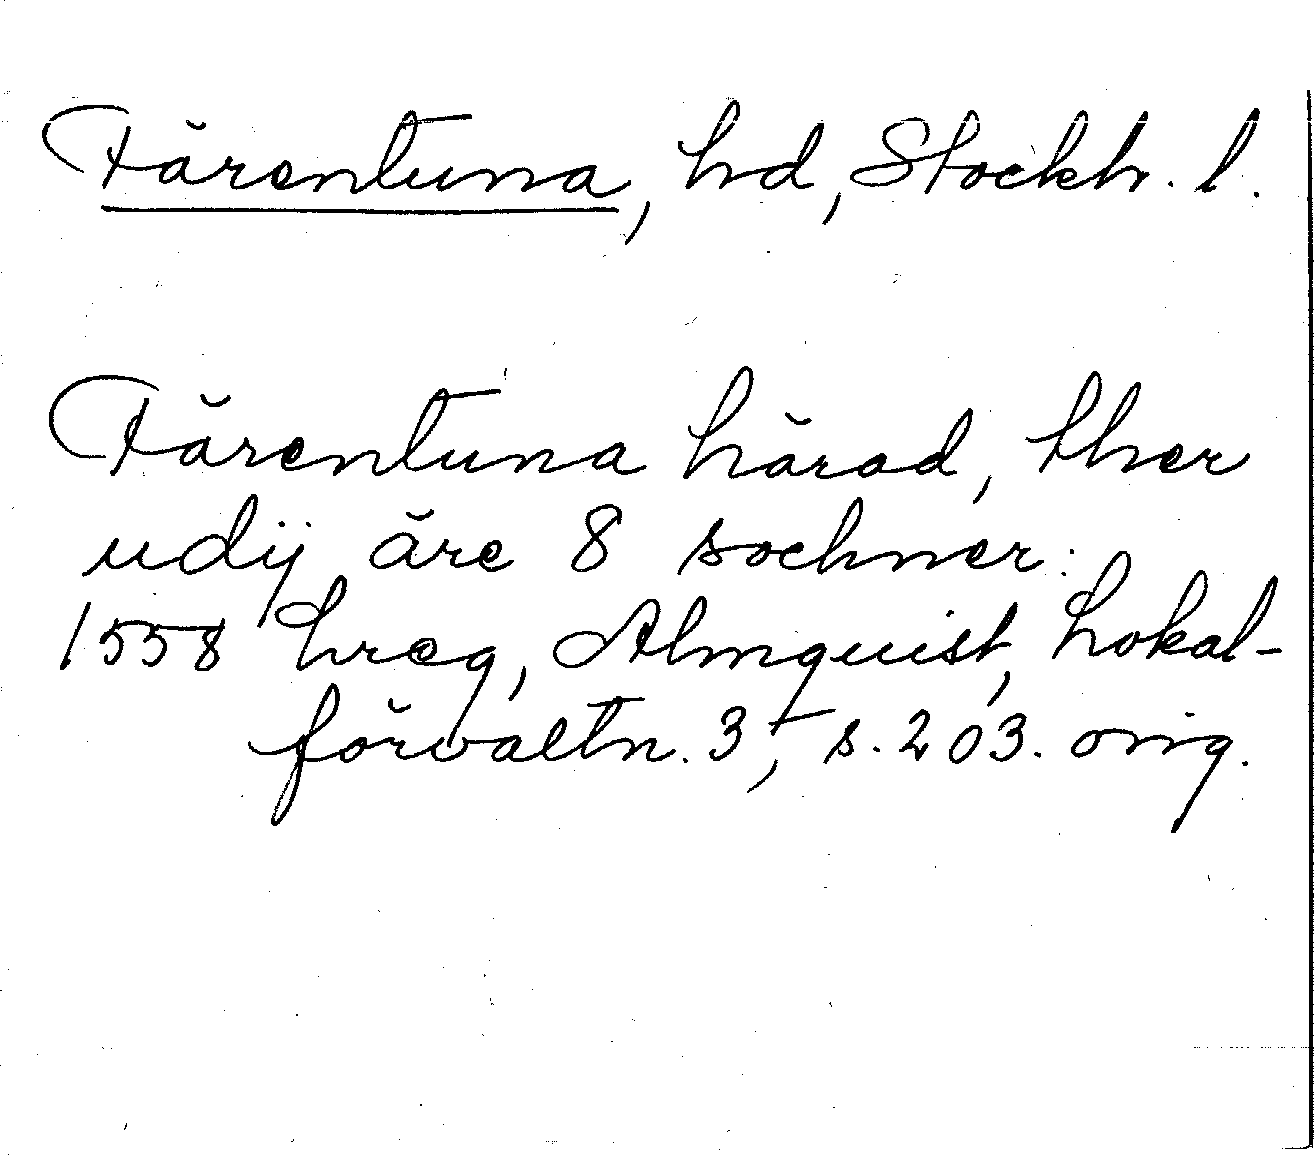 Färentuna, hd, Stockh. l.
Färentuna härad, ther
udij äre 8 sochner:
1558 hreg, Almquist, Lokal-
förvaltn. 3, s. 203. orig.